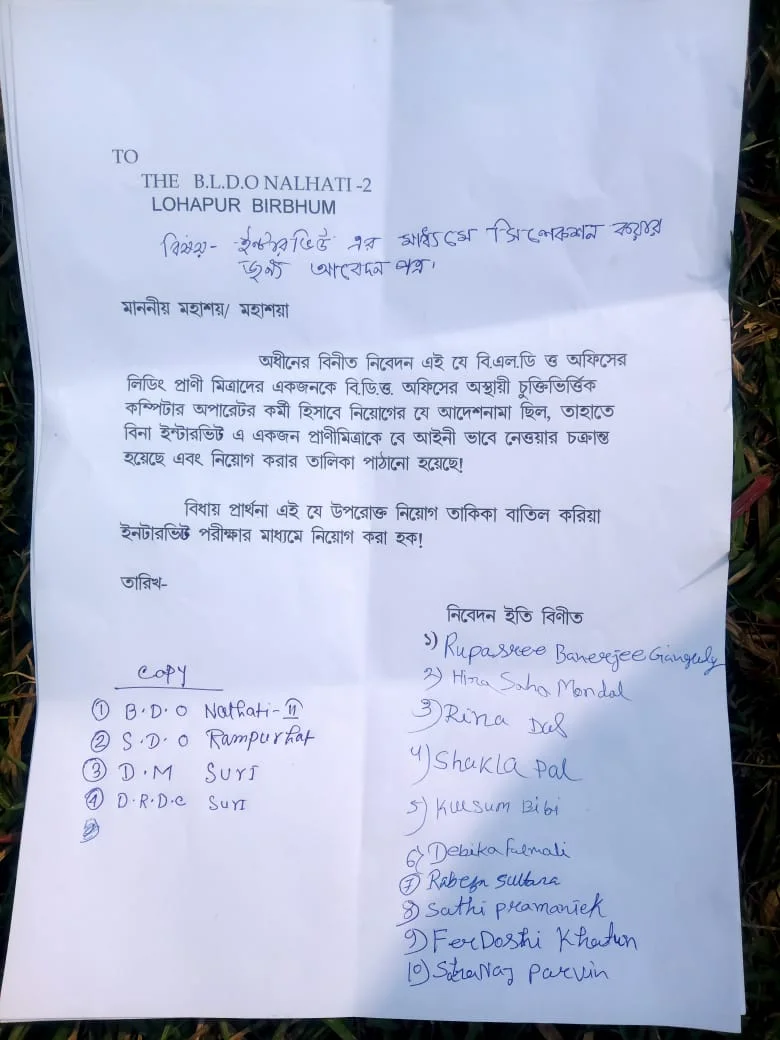 TO
THE B.L.D.O NALHATI -2
LOHAPUR BIRBHUM
বিষয়- ইন্টারভিউ এর মাধ্যমে সিলেকশন করার
জন্য আবেদন পত্র।
মাননীয় মহাশয়/ মহাশয়া
অধীনের বিনীত নিবেদন এই যে বি.এল.ডি ও অফিসের
লিডিং প্রাণী মিত্রাদের একজনকে বি.ডি.ও. অফিসের অস্থায়ী চুক্তিভির্ত্তিক
কম্পিটার অপারেটর কর্মী হিসাবে নিয়োগের যে আদেশনামা ছিল, তাহাতে
বিনা ইন্টারভিউ এ একজন প্রাণীমিত্রাকে বে আইনী ভাবে নেওয়ার চক্রান্ত
হয়েছে এবং নিয়োগ করার তালিকা পাঠানো হয়েছে!
বিধায় প্রার্থনা এই যে উপরোক্ত নিয়োগ তাকিকা বাতিল করিয়া
ইনটারভিউ পরীক্ষার মাধ্যমে নিয়োগ করা হক!
তারিখ-
নিবেদন ইতি বিণীত
১) Rupasree Banerjee Ganguly
২) Hira Saha Mondal
3) Rina Das
4) Shakla Pal
5) Kulsum Bibi
6) Debika
7) Rabeya Sultana
8) Sathi pramaniek
9) FerDoshi Khatun
10) Parvin
COPY
① B.D.O Nalhati-II
② S.D.O Rampurhat
③ D.M Suri
④ D.R.D.C Suri